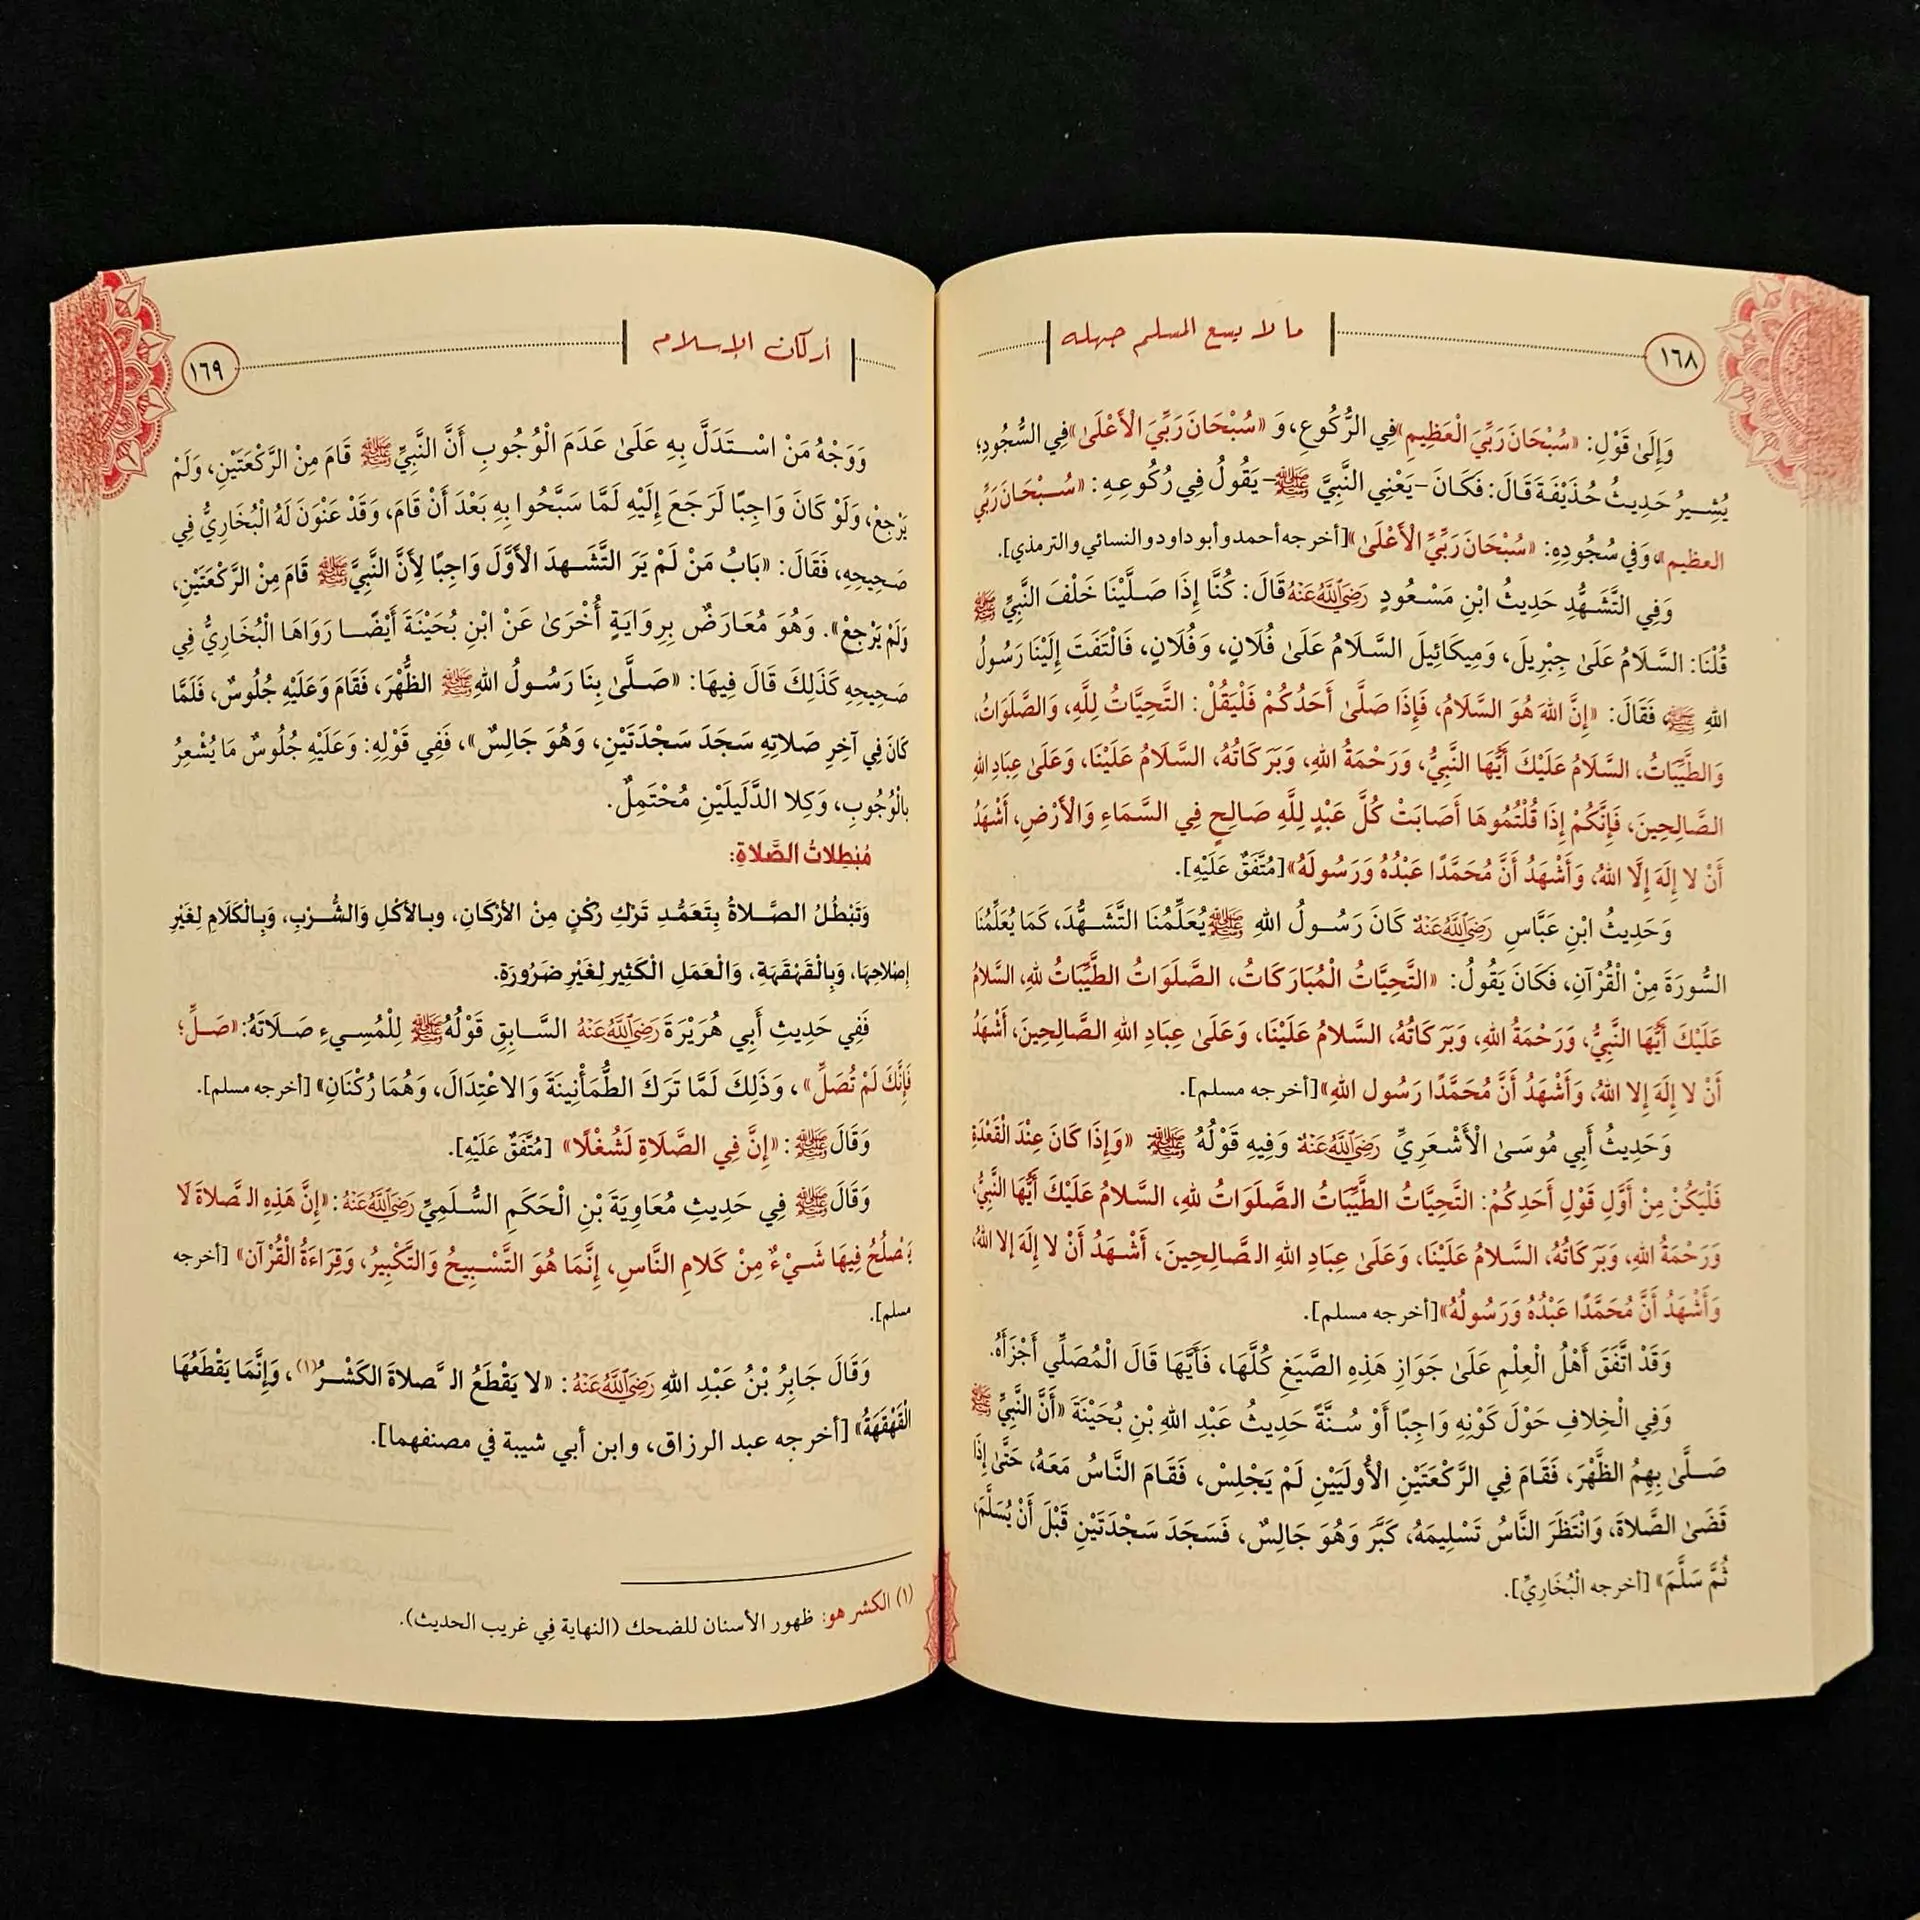 ١٦٨
ما لا يسع المسلم جهله
وَإِلَىٰ قَوْلِ: «سُبْحَانَ رَبِّيَ الْعَظِيمِ» فِي الرُّكُوعِ، وَ «سُبْحَانَ رَبِّيَ الْأَعْلَىٰ» فِي السُّجُودِ؛
يُشِيرُ حَدِيثُ حُذَيْفَةَ قَالَ: فَكَانَ -يَعْنِي النَّبِيَّ ﷺ- يَقُولُ فِي رُكُوعِهِ: «سُبْحَانَ رَبِّيَ
العظيم»، وَفِي سُجُودِهِ: «سُبْحَانَ رَبِّيَ الْأَعْلَىٰ» [أخرجه أحمد وأبو داود والنسائي والترمذي].
وَفِي التَّشَهُّدِ حَدِيثُ ابْنِ مَسْعُودٍ رَضِيَ اللَّهُ عَنْهُ قَالَ: كُنَّا إِذَا صَلَّيْنَا خَلْفَ النَّبِيِّ ﷺ
قُلْنَا: السَّلَامُ عَلَىٰ جِبْرِيلَ، وَمِيكَائِيلَ السَّلَامُ عَلَىٰ فُلَانٍ، وَفُلَانٍ، فَالْتَفَتَ إِلَيْنَا رَسُولُ
اللهِ ﷺ فَقَالَ: «إِنَّ اللهَ هُوَ السَّلَامُ، فَإِذَا صَلَّىٰ أَحَدُكُمْ فَلْيَقُلْ: التَّحِيَّاتُ لِلَّهِ، وَالصَّلَوَاتُ،
وَالطَّيِّبَاتُ، السَّلَامُ عَلَيْكَ أَيُّهَا النَّبِيُّ، وَرَحْمَةُ اللهِ، وَبَرَكَاتُهُ، السَّلَامُ عَلَيْنَا، وَعَلَىٰ عِبَادِ اللهِ
الصَّالِحِينَ، فَإِنَّكُمْ إِذَا قُلْتُمُوهَا أَصَابَتْ كُلَّ عَبْدٍ لِلَّهِ صَالِحٍ فِي السَّمَاءِ وَالْأَرْضِ، أَشْهَدُ
أَنْ لَا إِلَهَ إِلَّا اللهُ، وَأَشْهَدُ أَنَّ مُحَمَّدًا عَبْدُهُ وَرَسُولُهُ» [مُتَّفَقٌ عَلَيْهِ].
وَحَدِيثُ ابْنِ عَبَّاسٍ رَضِيَ اللَّهُ عَنْهُ كَانَ رَسُولُ اللهِ ﷺ يُعَلِّمُنَا التَّشَهُّدَ، كَمَا يُعَلِّمُنَا
السُّورَةَ مِنَ الْقُرْآنِ، فَكَانَ يَقُولُ: «التَّحِيَّاتُ الْمُبَارَكَاتُ، الصَّلَوَاتُ الطَّيِّبَاتُ لِلهِ، السَّلَامُ
عَلَيْكَ أَيُّهَا النَّبِيُّ، وَرَحْمَةُ اللهِ، وَبَرَكَاتُهُ، السَّلَامُ عَلَيْنَا، وَعَلَىٰ عِبَادِ اللهِ الصَّالِحِينَ، أَشْهَدُ
أَنْ لَا إِلَهَ إِلا اللهُ، وَأَشْهَدُ أَنَّ مُحَمَّدًا رَسُول اللهِ» [أخرجه مسلم].
وَحَدِيثُ أَبِي مُوسَىٰ الْأَشْعَرِيِّ رَضِيَ اللَّهُ عَنْهُ وَفِيهِ قَوْلُهُ ﷺ «وَإِذَا كَانَ عِنْدَ الْقَعْدَةِ
فَلْيَكُنْ مِنْ أَوَّلِ قَوْلِ أَحَدِكُمْ: التَّحِيَّاتُ الطَّيِّبَاتُ الصَّلَوَاتُ لِلهِ، السَّلَامُ عَلَيْكَ أَيُّهَا النَّبِيُّ،
وَرَحْمَةُ اللهِ، وَبَرَكَاتُهُ، السَّلَامُ عَلَيْنَا، وَعَلَىٰ عِبَادِ اللهِ الصَّالِحِينَ، أَشْهَدُ أَنْ لَا إِلَهَ إِلا اللهُ،
وَأَشْهَدُ أَنَّ مُحَمَّدًا عَبْدُهُ وَرَسُولُهُ» [أخرجه مسلم].
وَقَدْ اتَّفَقَ أَهْلُ الْعِلْمِ عَلَىٰ جَوَازِ هَذِهِ الصِّيَغِ كُلِّهَا، فَأَيَّهَا قَالَ الْمُصَلِّي أَجْزَأَهُ.
وَفِي الْخِلَافِ حَوْلَ كَوْنِهِ وَاجِبًا أَوْ سُنَّةً حَدِيثُ عَبْدِ اللهِ بْنِ بُحَيْنَةَ «أَنَّ النَّبِيَّ ﷺ
صَلَّىٰ بِهِمُ الظَّهْرَ، فَقَامَ فِي الرَّكْعَتَيْنِ الْأُولَيَيْنِ لَمْ يَجْلِسْ، فَقَامَ النَّاسُ مَعَهُ، حَتَّىٰ إِذَا
قَضَىٰ الصَّلَاةَ، وَانْتَظَرَ النَّاسُ تَسْلِيمَهُ، كَبَّرَ وَهُوَ جَالِسٌ، فَسَجَدَ سَجْدَتَيْنِ قَبْلَ أَنْ يُسَلِّمَ،
ثُمَّ سَلَّمَ» [أخرجه الْبُخَارِيِّ].
أركان الإسلام
١٦٩
وَوَجْهُ مَنْ اسْتَدَلَّ بِهِ عَلَىٰ عَدَمَ الْوُجُوبِ أَنَّ النَّبِيَّ ﷺ قَامَ مِنْ الرَّكْعَتَيْنِ، وَلَمْ
يَرْجِعْ، وَلَوْ كَانَ وَاجِبًا لَرَجَعَ إِلَيْهِ لَمَّا سَبَّحُوا بِهِ بَعْدَ أَنْ قَامَ، وَقَدْ عَنْوَنَ لَهُ الْبُخَارِيُّ فِي
صَحِيحِهِ، فَقَالَ: «بَابُ مَنْ لَمْ يَرَ التَّشَهدَ الْأَوَّلَ وَاجِبًا لِأَنَّ النَّبِيَّ ﷺ قَامَ مِنْ الرَّكْعَتَيْنِ،
وَلَمْ يَرْجِعْ». وَهُوَ مُعَارَضٌ بِرِوَايَةٍ أُخْرَىٰ عَنْ ابْنِ بُحَيْنَةَ أَيْضًا رَوَاهَا الْبُخَارِيُّ فِي
صَحِيحِهِ كَذَلِكَ قَالَ فِيهَا: «صَلَّىٰ بِنَا رَسُولُ اللهِ ﷺ الظُّهْرَ، فَقَامَ وَعَلَيْهِ جُلُوسٌ، فَلَمَّا
كَانَ فِي آخِرِ صَلَاتِهِ سَجَدَ سَجْدَتَيْنِ، وَهُوَ جَالِسٌ»، فَفِي قَوْلِهِ: وَعَلَيْهِ جُلُوسٌ مَا يُشْعِرُ
بِالْوُجُوبِ، وَكِلا الدَّلَيلَيْنِ مُحْتَمِلٌ.
مُبْطِلَاتُ الصَّلَاةِ:
وَتَبْطُلُ الصَّلَاةُ بِتَعَمُّدِ تَرْكِ رُكْنٍ مِنْ الأَرْكَانِ، وبِالأَكْلِ وَالشُّرْبِ، وَبِالْكَلَامِ لِغَيْرِ
إِصْلَاحِهَا، وَبِالْقَهْقَهَةِ، وَالْعَمَلِ الْكَثِيرِ لِغَيْرِ ضَرُورَةٍ.
فَفِي حَدِيثِ أَبِي هُرَيْرَةَ رَضِيَ اللَّهُ عَنْهُ السَّابِقِ قَوْلُهُ ﷺ لِلْمُسِيءِ صَلَاتَهُ: «صَلِّ؛
فَإِنَّكَ لَمْ تُصَلِّ»، وَذَلِكَ لَمَّا تَرَكَ الطُّمَأْنِينَةَ وَالاعْتِدَالَ، وَهُمَا رُكْنَانِ» [أخرجه مسلم].
وَقَالَ ﷺ: «إِنَّ فِي الصَّلَاةِ لَشُغْلًا» [مُتَّفَقٌ عَلَيْهِ].
وَقَالَ ﷺ فِي حَدِيثِ مُعَاوِيَةَ بْنِ الْحَكَمِ السُّلَمِيِّ رَضِيَ اللَّهُ عَنْهُ: «إِنَّ هَذِهِ الصَّلاةَ لَا
يَصْلُحُ فِيهَا شَيْءٌ مِنْ كَلَامِ النَّاسِ، إِنَّمَا هُوَ التَّسْبِيحُ وَالتَّكْبِيرُ، وَقِرَاءَةُ الْقُرْآنِ» [أخرجه
مسلم].
وَقَالَ جَابِرُ بْنُ عَبْدِ اللهِ رَضِيَ اللَّهُ عَنْهُ: «لا يَقْطَعُ الصَّلاةَ الكَشْرُ(١)، وَإِنَّمَا يَقْطَعُهَا
الْقَهْقَهَةُ» [أخرجه عبد الرزاق، وابن أبي شيبة في مصنفهما].
(١) الكشر هو: ظهور الأسنان للضحك (النهاية فِي غريب الحديث).